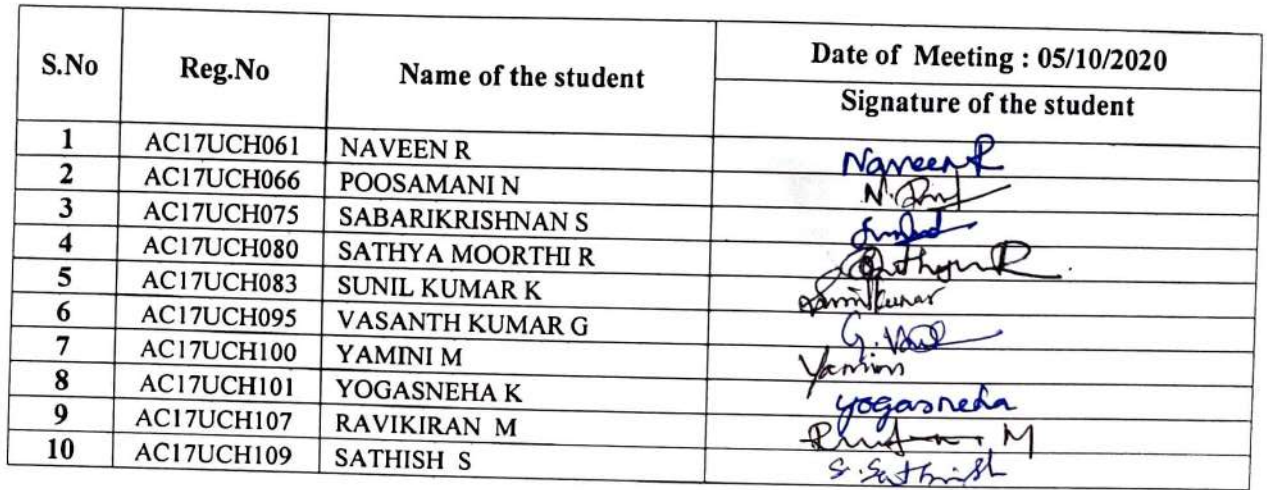 S.No Reg.No Name of the student Date of Meeting : 05/10/2020
Signature of the student
1 AC17UCH061 NAVEEN R Naveen R
2 AC17UCH066 POOSAMANI N N.
3 AC17UCH075 SABARIKRISHNAN S
4 AC17UCH080 SATHYA MOORTHI R R.
5 AC17UCH083 SUNIL KUMAR K Sunil Kumar
6 AC17UCH095 VASANTH KUMAR G G.
7 AC17UCH100 YAMINI M Yamini
8 AC17UCH101 YOGASNEHA K yogasneha
9 AC17UCH107 RAVIKIRAN M M
10 AC17UCH109 SATHISH S S. Sathish